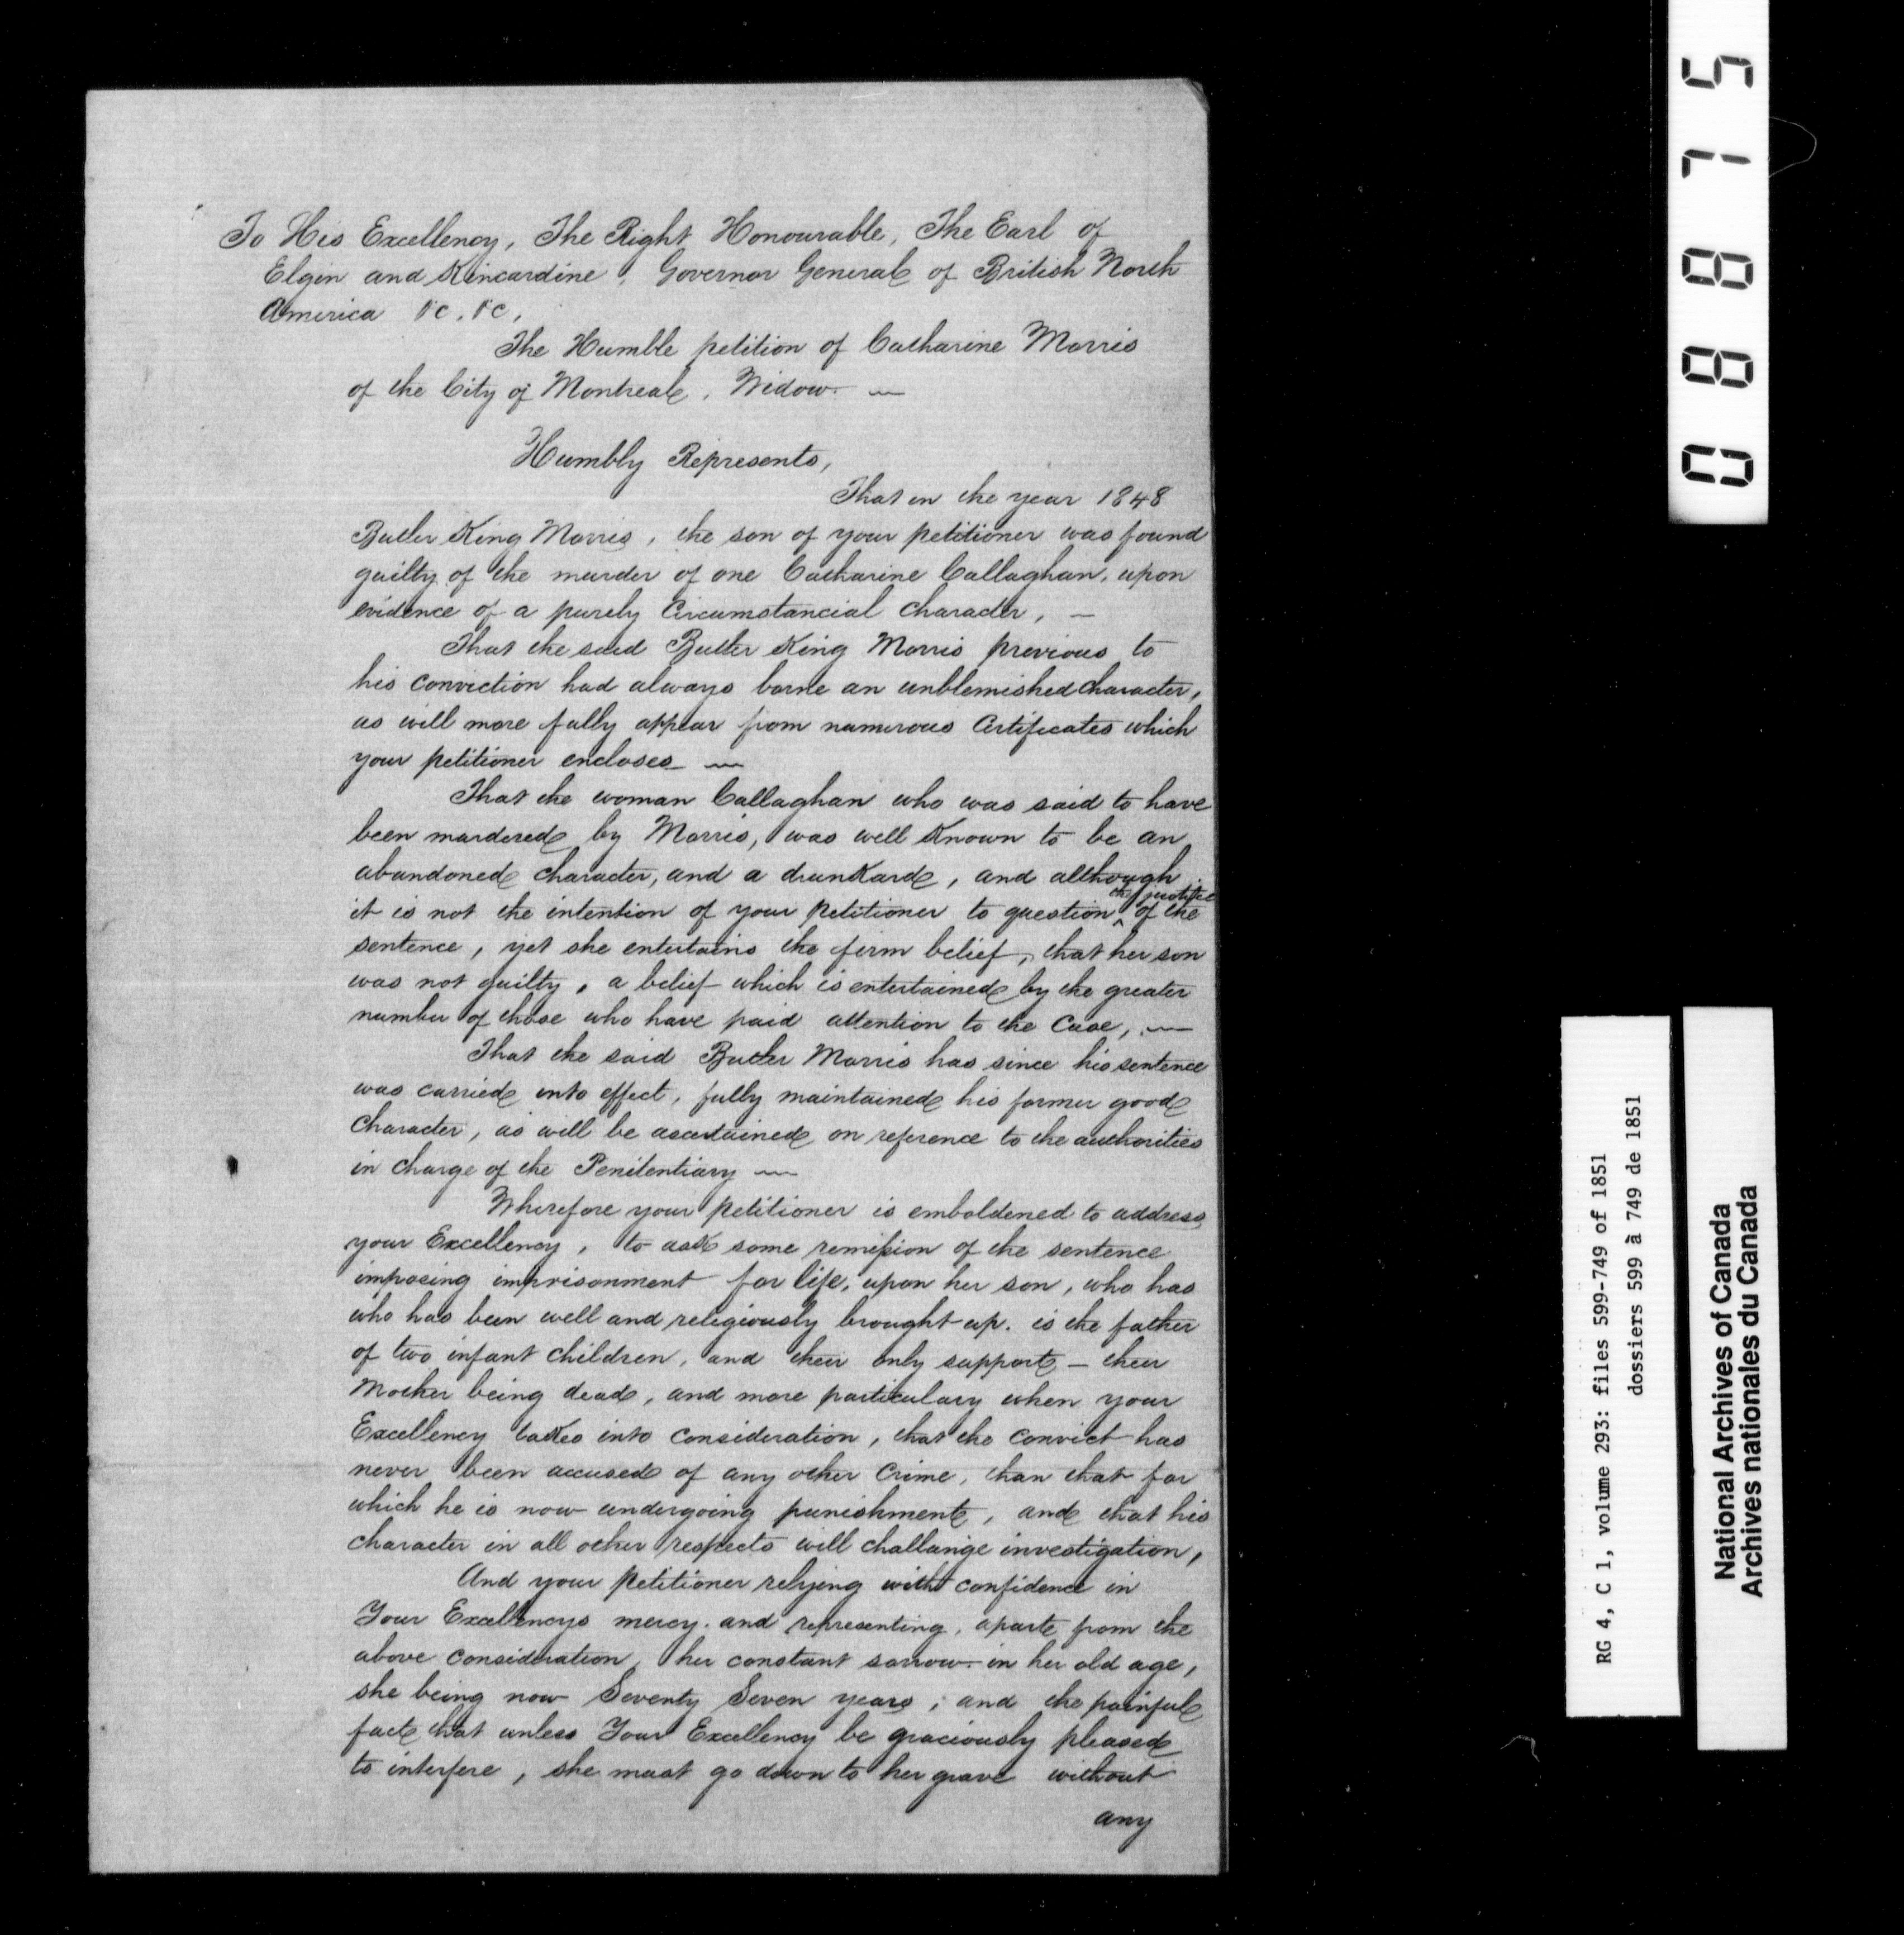 To His Excellency, The Right Honourable, The Earl of
Elgin and Kincardine, Governor General of British North
America &c, &c,
The Humble petition of Catharine Morris
of the City of Montreal, Widow. —
Humbly Represents,
That in the year 1848
Butler King Morris, the son of your petitioner was found
guilty of the murder of one Catharine Callaghan, upon
evidence of a purely Circumstancial character, —
That the said Butler King Morris previous to
his conviction had always borne an unblemished character,
as will more fully appear from numerous Certificates which
your petitioner encloses —
That the woman Callaghan who was said to have
been murdered by Morris, was well known to be an
abandoned character, and a drunkard, and although
it is not the intention of your petitioner to question the justice of the
sentence, yet she entertains the firm belief, that her son
was not guilty, a belief which is entertained by the greater
number of those who have paid attention to the Case, —
That the said Butler Morris has since his sentence
was carried into effect, fully maintained his former good
Character, as will be ascertained on reference to the authorities
in charge of the Penitentiary —
Wherefore your petitioner is emboldened to address
your Excellency, to ask some remission of the sentence
imposing imprisonment for life, upon her son, who has
who has been well and religiously brought up. is the father
of two infant children, and their only support — their
Mother being dead, and more particulary when your
Excellency takes into consideration, that the convict has
never been accused of any other Crime, than that for
which he is now undergoing punishment, and that his
character in all other respects will challange investigation,
And your petitioner relying with confidence in
Your Excellencys mercy. and representing, aparte from the
above consideration, her constant sorrow in her old age,
she being now Seventy Seven years; and the painful
fact that unless Your Excellency be graciously pleased
to interfere, she must go down to her grave without
any
08875
RG 4, C 1, volume 293: files 599-749 of 1851
dossiers 599 à 749 de 1851
National Archives of Canada
Archives nationales du Canada